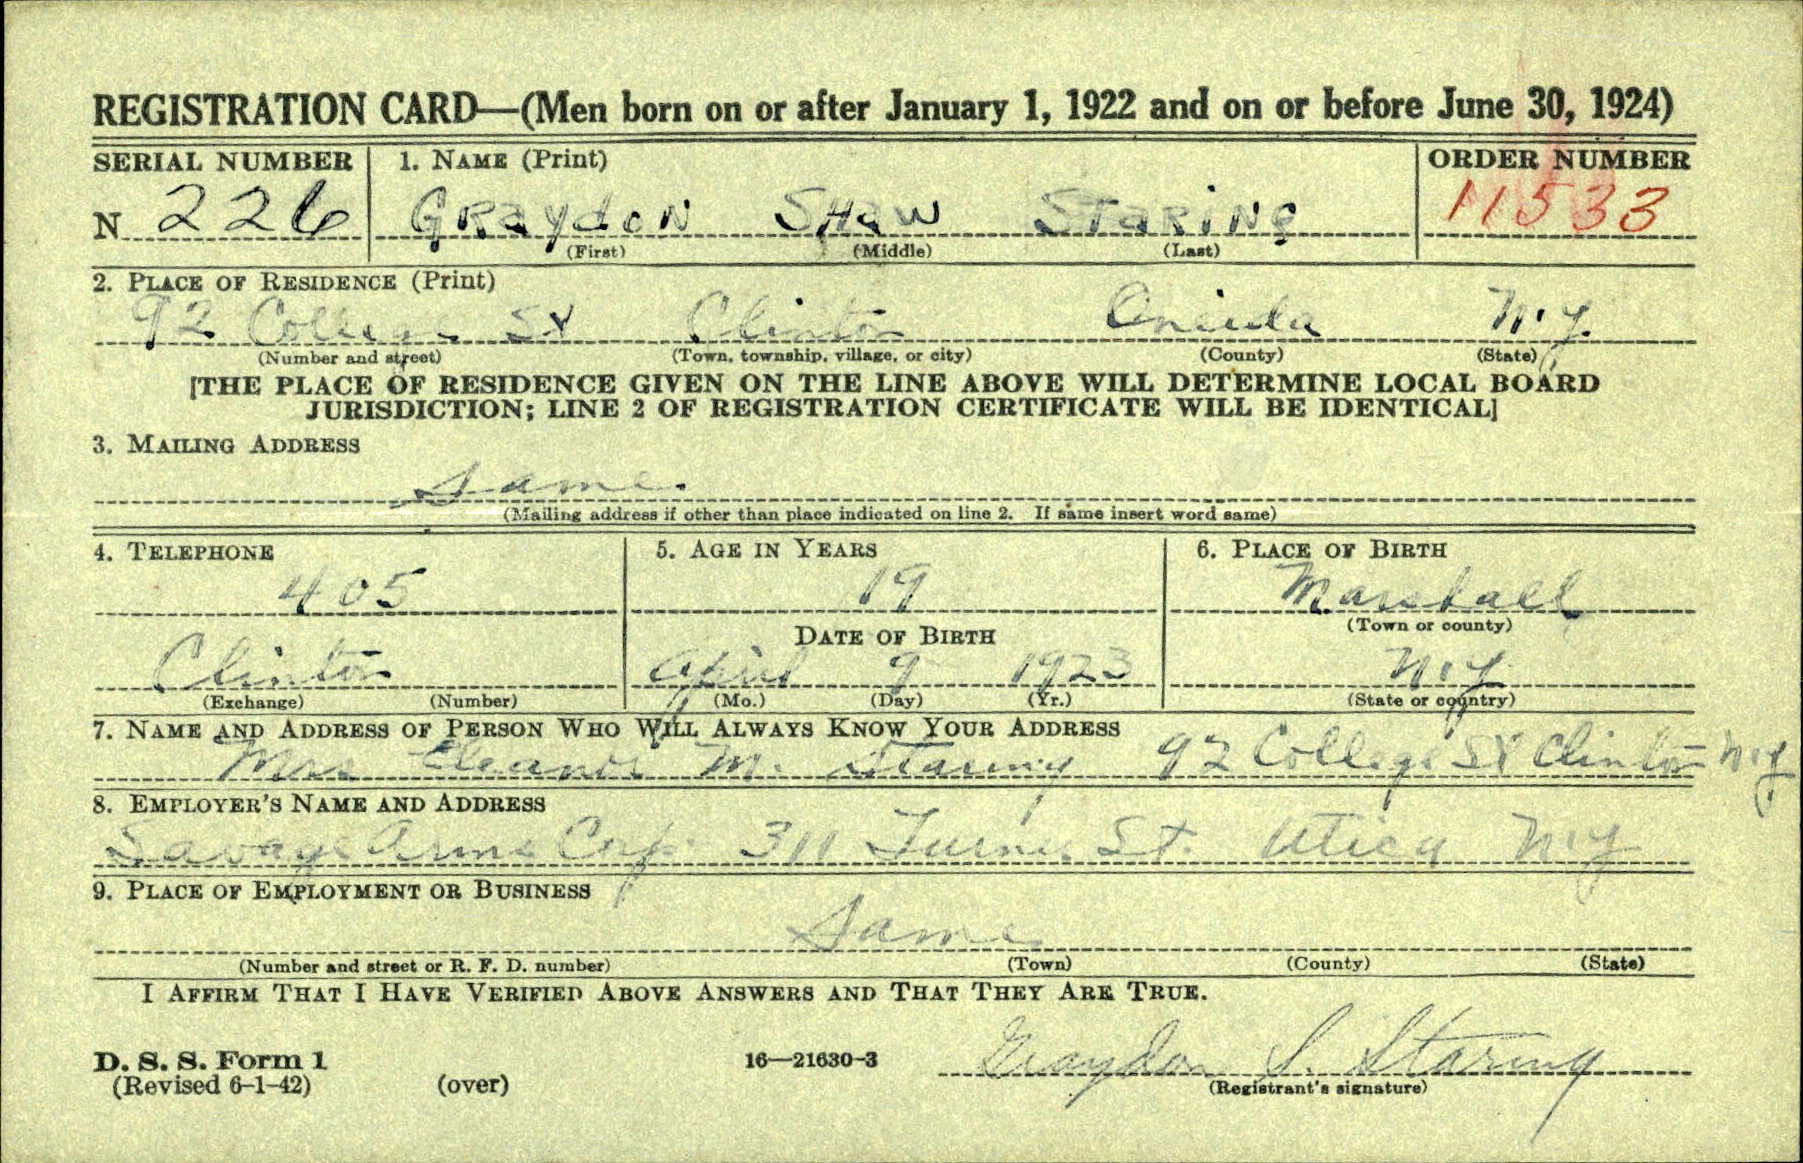 REGISTRATION CARD—(Men born on or after January 1, 1922 and on or before June 30, 1924)
SERIAL NUMBER 1. NAME (Print) ORDER NUMBER
N 226 GRaydoN SHaw STaRiNg 11533
(First) (Middle) (Last)
2. PLACE OF RESIDENCE (Print)
92 College St Clinton Oneida N.Y.
(Number and street) (Town, township, village, or city) (County) (State)
[THE PLACE OF RESIDENCE GIVEN ON THE LINE ABOVE WILL DETERMINE LOCAL BOARD
JURISDICTION; LINE 2 OF REGISTRATION CERTIFICATE WILL BE IDENTICAL]
3. MAILING ADDRESS
Same
(Mailing address if other than place indicated on line 2. If same insert word same)
4. TELEPHONE 5. AGE IN YEARS 6. PLACE OF BIRTH
405 19 Marshall
(Town or county)
DATE OF BIRTH
Clinton April 9 1923 N.Y.
(Exchange) (Number) (Mo.) (Day) (Yr.) (State or country)
7. NAME AND ADDRESS OF PERSON WHO WILL ALWAYS KNOW YOUR ADDRESS
Mrs Eleanor M. Staring 92 College St Clinton N.Y
8. EMPLOYER'S NAME AND ADDRESS
Savage Arms Corp. 311 Turner St. Utica N.Y
9. PLACE OF EMPLOYMENT OR BUSINESS
Same
(Number and street or R. F. D. number) (Town) (County) (State)
I AFFIRM THAT I HAVE VERIFIED ABOVE ANSWERS AND THAT THEY ARE TRUE.
D. S. S. Form 1 16—21630-3 Graydon S. Staring
(Revised 6-1-42) (over) (Registrant's signature)